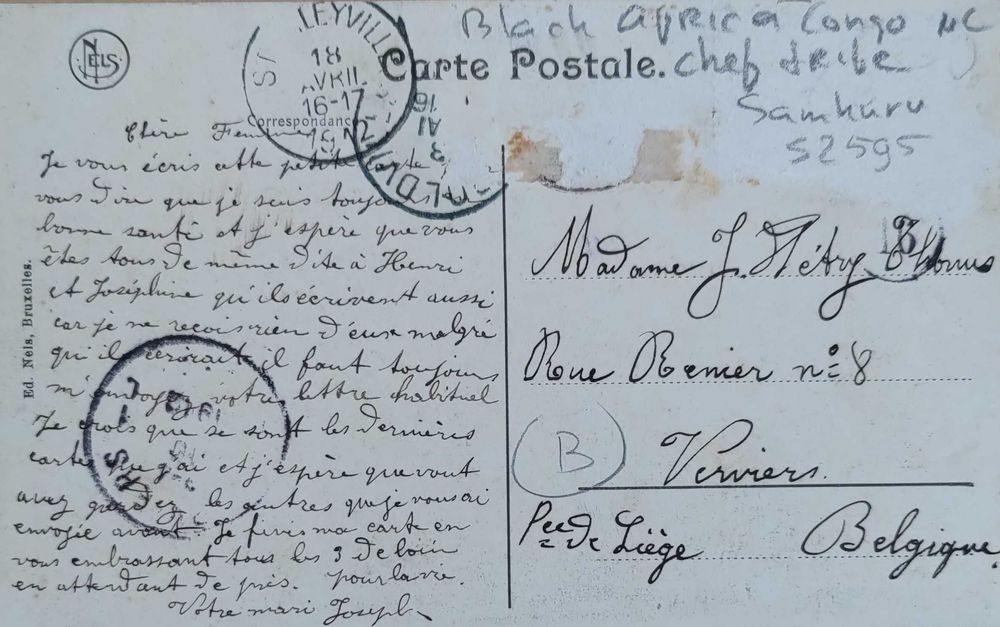 NELS
LEYVILLE
18
AVRIL
16-17
19
Black Africa Congo
Carte Postale.
chef tribe
Samkuru
52595
Correspondance
Chère Femme
Je vous écris cette petite carte
vous dire que je suis toujours
bonne santé et j'espère que vous
êtes tous de même dite à Henri
et Joséphine qu'ils écrivent aussi
car je ne reçois rien d'eux malgré
qu'ils il faut toujours
m'envoyez votre lettre habituel
Je crois que se sont les dernières
cartes que j'ai et j'espère que vout
avez les autres que je vous ai
envoyée avant. Je finis ma carte en
vous embrassant tous les 3 de loin
en attendant de près. pour la vie.
Votre mari Joseph
Ed. Nels, Bruxelles.
Madame J. Nétry
Rue Renier nº 8
B
Verviers.
Pce de Liège Belgique.